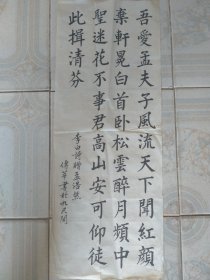 吾愛孟夫子風流天下聞紅顏
棄軒冕白首卧松雲醉月頻中
聖迷花不事君高山安可仰徒
此揖清芬
李白詩贈孟浩然
書於